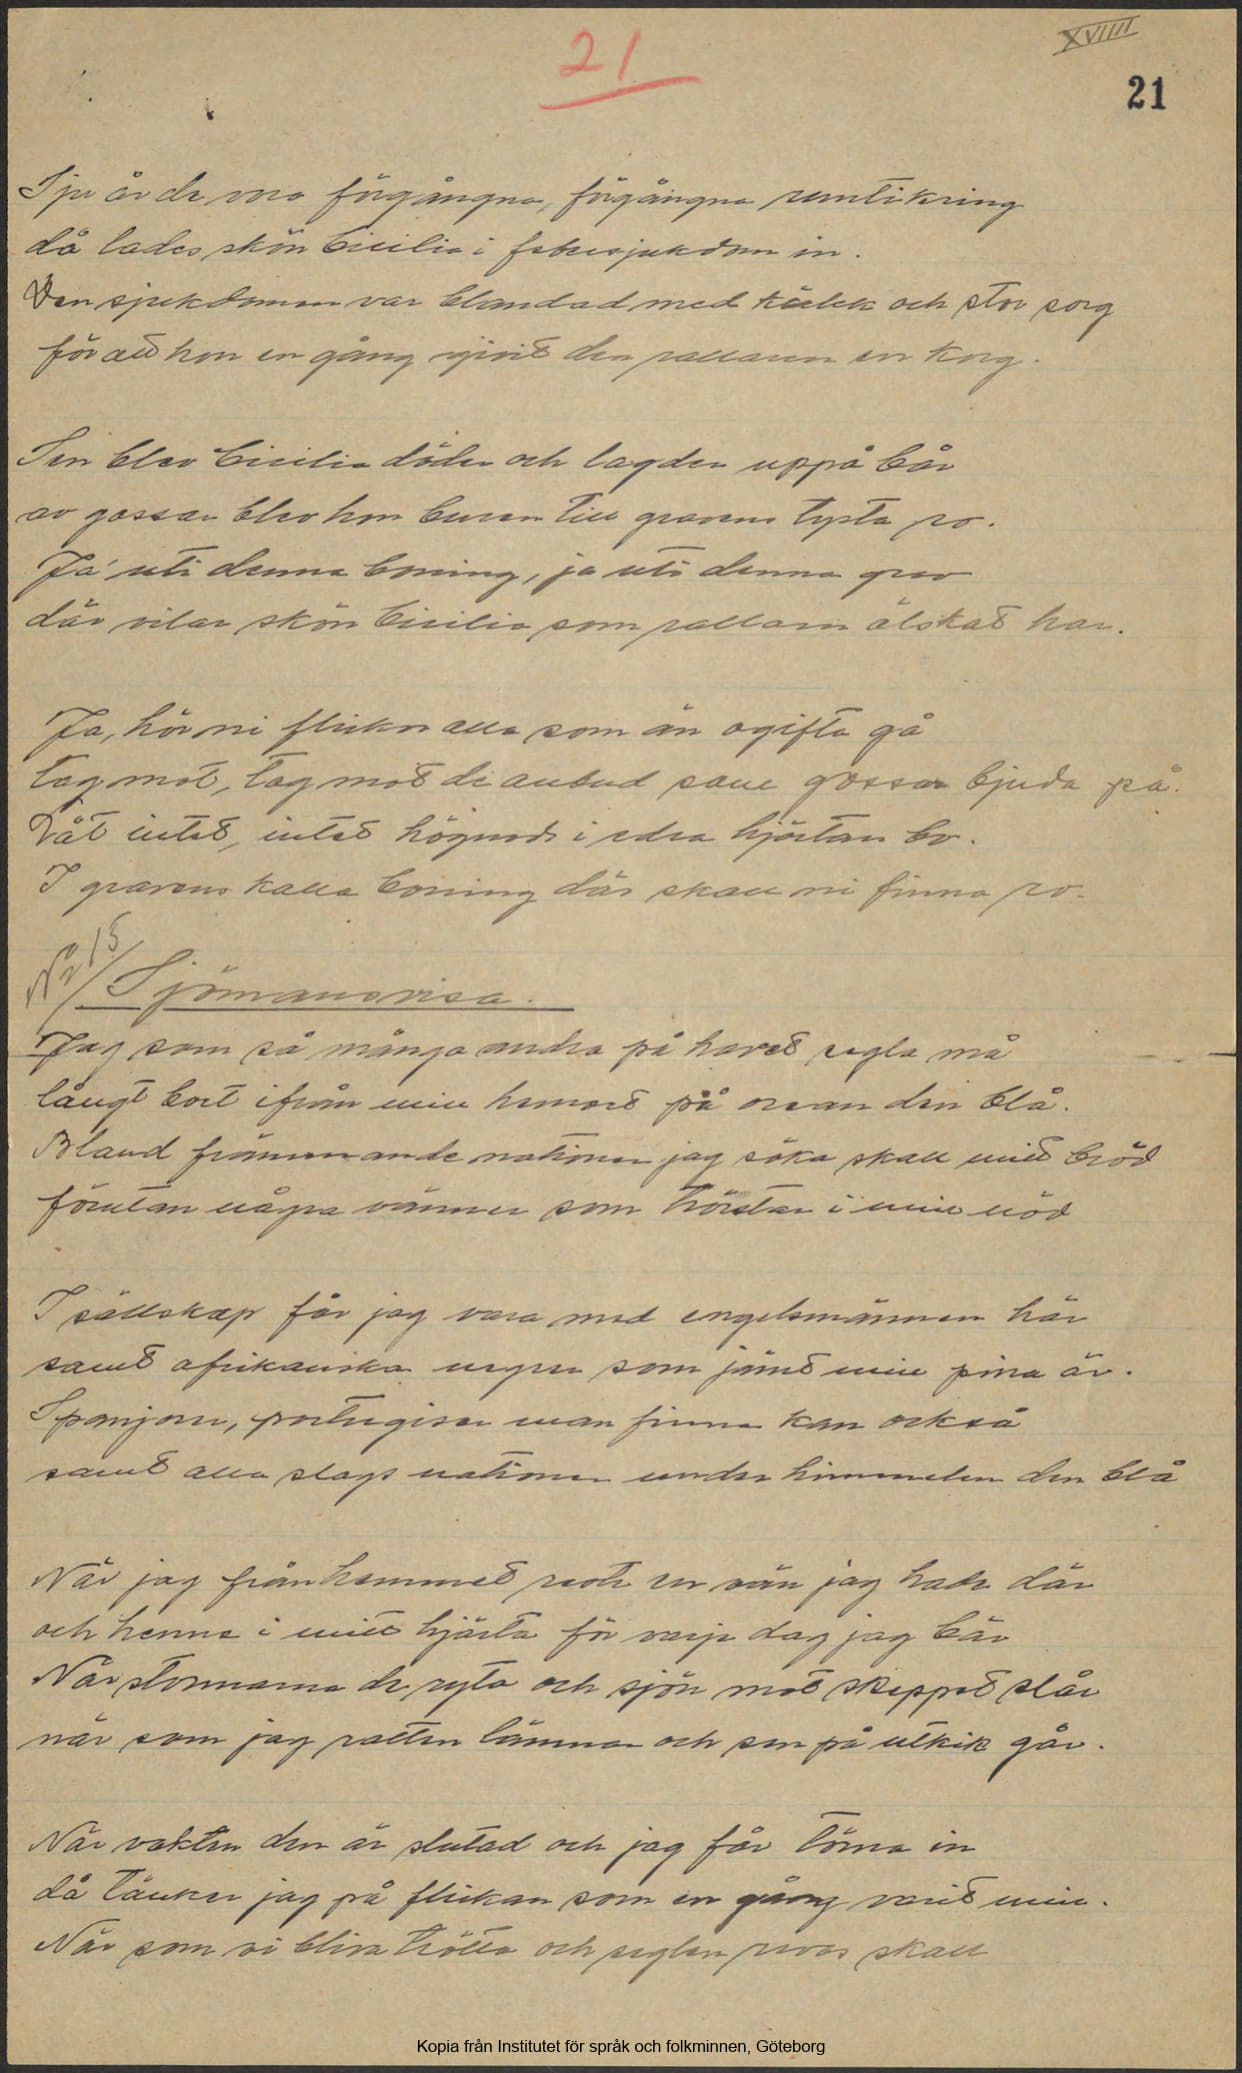 XVIIII
21
21
Sju år de voro förgångna, förgångna runtikring
då lades skön Cicilia i febersjukdom in.
Den sjukdomen var blandad med kärlek och stor sorg
för att hon en gång givit den rallaren en korg.
Sen blev Cicilia döder och lagder uppå bår
av gossar blev hon buren till gravens tysta ro.
Ja uti denna boning, ja uti denna grav
där vilar skön Cicilia som rallaren älskat har.
Ja, hör ni flickor alla som än ogifta gå
tag mot, tag mot de anbud som gossar bjuda på.
Låt intet, intet högmod i edra hjärtan bo.
I gravens kalla boning där skall ni finna ro.
No 15/ Sjömansvisa.
Jag som så många andra på havet segla må
långt bort ifrån min hemort på ocean den blå.
Bland främmande nationer jag söka skall mitt bröd
förutan några vänner som tröstar i min nöd
I sällskap får jag vara med engelsmännen här
samt afrikanska negrer som jämt min pina är.
Spanjorer, portugiser man finna kan också
samt alla slags nationer under himmelen den blå
När jag från hemmet reste en vän jag hade där
och henne i mitt hjärta för varje dag jag bär
När stormarna de ryta och sjön mot skeppet slår
när som jag ratten lämnar och sen på utkik går.
När vakten den är slutad och jag får törna in
då tänker jag på flickan som en gång varit min.
När som vi bliva trötta och seglen revas skall
Kopia från Institutet för språk och folkminnen, Göteborg